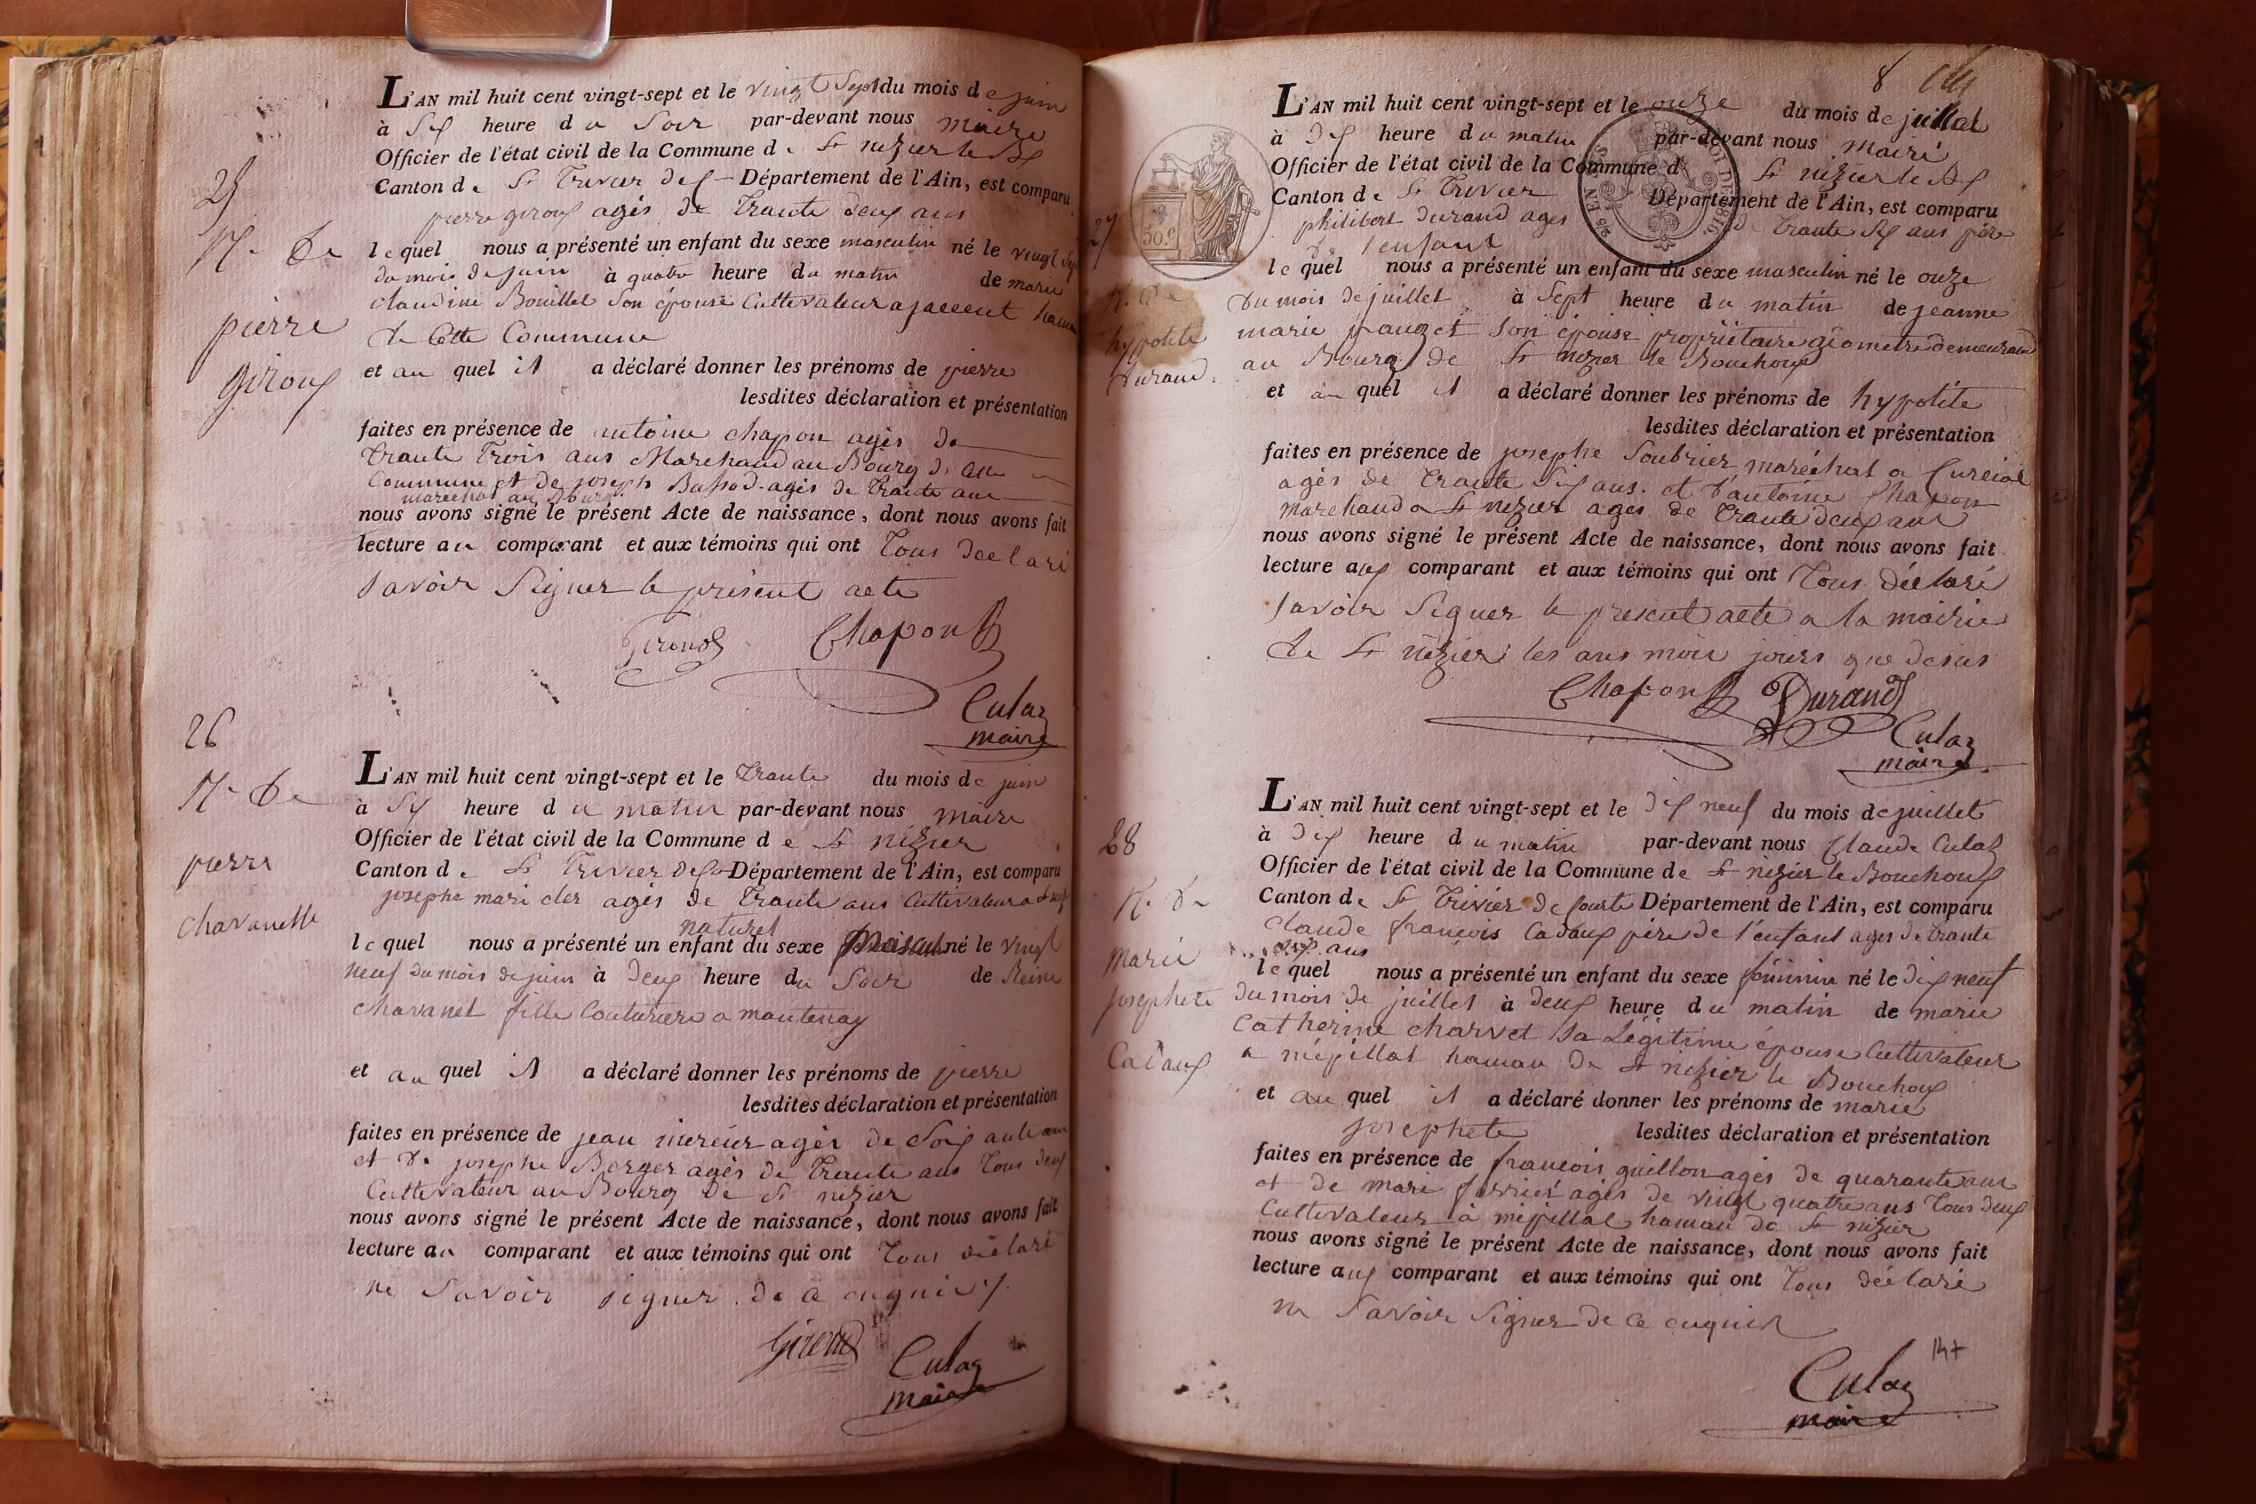 25
N. de
pierre
Giroux
L'AN mil huit cent vingt-sept et le vingt Sept du mois de juin
à Six heure du Soir par-devant nous maire
Officier de l'état civil de la Commune de St nizier le Bx
Canton de St Trivier de Département de l'Ain, est comparu
pierre giroux agés de Trante deux ans
lequel nous a présenté un enfant du sexe masculin né le vingt Sept
du mois de juin à quatre heure du matin de marie
claudine Bouillet Son épouse Cultivateur a jacent hamau
de Cette Commune
et au quel il a déclaré donner les prénoms de pierre
lesdites déclaration et présentation
faites en présence de antoine chapon agès de
Trante Trois ans Marchand au Bourg de
Commune et de joseph Bassod agés de Trante ans
maréchal au Bourg
nous avons signé le présent Acte de naissance, dont nous avons fait
lecture au comparant et aux témoins qui ont Tous déclaré
Savoir Signer le présent acte
Giroud Chapon
Culaz
maire
26
N. de
pierre
chavanette
L'AN mil huit cent vingt-sept et le Trante du mois de juin
à Six heure du matin par-devant nous maire
Officier de l'état civil de la Commune de St nizier
Canton de St Trivier de Département de l'Ain, est comparu
josephe mari cler agés de Trante ans Cultivateur a
naturel
lequel nous a présenté un enfant du sexe Masculin né le vingt
neuf du mois de juin à deux heure du Soir de Reine
chavanet fille Couturiere a mantenay
et au quel il a déclaré donner les prénoms de pierre
lesdites déclaration et présentation
faites en présence de jean agès de Soixante ans
et de josephe Berger agès de Trante ans Tous deux
Cultivateur au Bourg de St nizier
nous avons signé le présent Acte de naissance, dont nous avons fait
lecture au comparant et aux témoins qui ont Tous déclaré
ne Savoir signer de
Giroud
Culaz
maire
8
27
N. de
hypolite
Durand
L'AN mil huit cent vingt-sept et le onze du mois de juillet
à dix heure du matin par-devant nous maire
Officier de l'état civil de la Commune d St nizier le Bx
Canton de St Trivier Département de l'Ain, est comparu
philibert durand ages de Trante Six ans père
de l'enfant
lequel nous a présenté un enfant du sexe masculin né le onze
du mois de juillet à Sept heure du matin de jeanne
marie pauget Son épouse propriétaire géometre demeurand
au Bourg de St nizier le Bouchoux
et au quel il a déclaré donner les prénoms de hypolite
lesdites déclaration et présentation
faites en présence de josephe Soubrier maréchal a Curciat
agés de Trante Six ans. et d'antoine Chapon
marchand a St nizier ages de Trante deux ans
nous avons signé le présent Acte de naissance, dont nous avons fait
lecture aux comparant et aux témoins qui ont Tous déclaré
Savoir Signer le présent acte a la mairie
de St nizier les ans mois jours que desus
Chapon Durand
Culaz
maire
28
N. de
marie
josephete
Cadaux
L'AN mil huit cent vingt-sept et le dix neuf du mois de juillet
à dix heure du matin par-devant nous Claude Culaz
Officier de l'état civil de la Commune de St nizier le Bouchoux
Canton de St Trivier de Courte Département de l'Ain, est comparu
claude françois Cadaux père de l'enfant ages de trante
ans
lequel nous a présenté un enfant du sexe féminin né le dix neuf
du mois de juillet à deux heure du matin de marie
Catherine charvet Sa Légitime épouse Cultivateur
a mépillat hamau de St nizier le Bouchoux
et au quel il a déclaré donner les prénoms de marie
josephete lesdites déclaration et présentation
faites en présence de françois guillon agés de quarante ans
et de mari ferrier agés de vingt quatre ans Tous deux
Cultivateur à mépillat hamau de St nizier
nous avons signé le présent Acte de naissance, dont nous avons fait
lecture aux comparant et aux témoins qui ont Tous déclaré
ne Savoir Signer de ce enquis
Culaz
maire